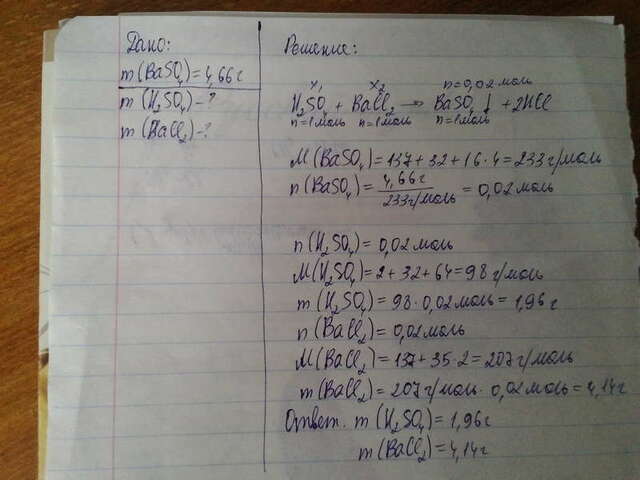 Дано:
m(BaSO₄)=4,66г
m(H₂SO₄)-?
m(BaCl₂)-?
Решение:
x₁ x₂ n=0,02моль
H₂SO₄ + BaCl₂ → BaSO₄↓ + 2HCl
n=1моль n=1моль n=1моль
M(BaSO₄)=137+32+16·4=233г/моль
n(BaSO₄)= 4,66г / 233г/моль = 0,02моль
n(H₂SO₄)=0,02моль
M(H₂SO₄)=2+32+64=98г/моль
m(H₂SO₄)=98·0,02моль=1,96г
n(BaCl₂)=0,02моль
M(BaCl₂)=137+35·2=207г/моль
m(BaCl₂)=207г/моль·0,02моль=4,14г
Ответ. m(H₂SO₄)=1,96г
m(BaCl₂)=4,14г